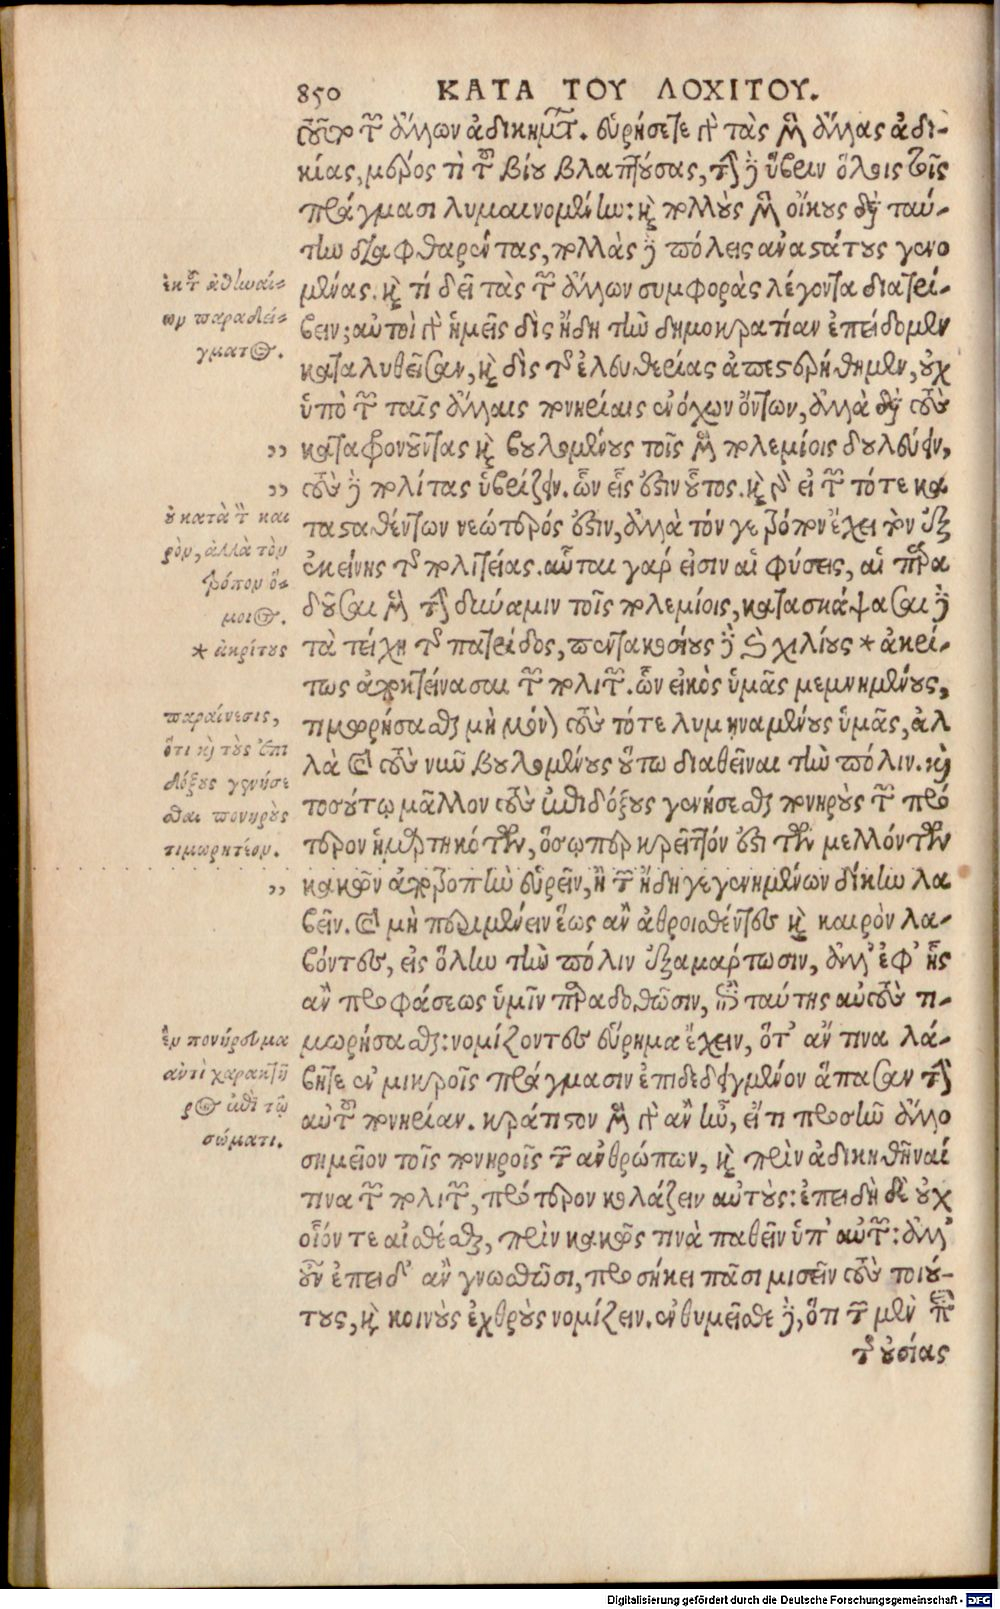 850 ΚΑΤΑ ΤΟΥ ΛΟΧΙΤΟΥ.
τῶν ἄλλων ἀδικημάτων. εὑρήσετε γὰρ τὰς μὲν ἄλλας ἀδι-
κίας, μέρος τὶ τοῦ βίου βλαπτούσας, τὴν δὲ ὕβριν ὅλοις τοῖς
πράγμασι λυμαινομένην: καὶ πολλοὺς μὲν οἴκους διὰ ταύ-
την διαφθαρέντας, πολλὰς δὲ πόλεις ἀναστάτους γενο
μένας. καὶ τί δεῖ τὰς τῶν ἄλλων συμφορὰς λέγοντα διατρί-
βειν; αὐτοὶ γὰρ ἡμεῖς δὶς ἤδη τὴν δημοκρατίαν ἐπείδομεν
καταλυθεῖσαν, καὶ δὶς τῆς ἐλευθερίας ἀπεστερήθημεν, οὐχ
ὑπὸ τῶν ταῖς ἄλλαις πονηρίαις ἐνόχων ὄντων, ἀλλὰ διὰ τοὺς
καταφρονοῦντας καὶ βουλομένους τοῖς μὲν πολεμίοις δουλεύειν,
τοὺς δὲ πολίτας ὑβρίζειν. ὧν εἷς ἐστιν οὗτος. καὶ γὰρ εἰ τῶν τότε κα
τασταθέντων νεώτερός ἐστιν, ἀλλὰ τόν γε τρόπον ἔχει τὸν ἐξ
ἐκείνης τῆς πολιτείας. αὗται γάρ εἰσιν αἱ φύσεις, αἱ παρα
δοῦσαι μὲν τὴν δύναμιν τοῖς πολεμίοις, κατασκάψασαι δὲ
τὰ τείχη τῆς πατρίδος, πεντακοσίους δὲ καὶ χιλίους * ἀκρί-
τως ἀποκτείνασαι τῶν πολιτῶν. ὧν εἰκὸς ὑμᾶς μεμνημένους,
τιμωρήσασθαι μὴ μόνον τοὺς τότε λυμηναμένους ὑμᾶς, ἀλ
λὰ καὶ τοὺς νῦν βουλομένους οὕτω διαθεῖναι τὴν πόλιν. καὶ
τοσούτῳ μᾶλλον τοὺς ἐπιδόξους γενήσεσθαι πονηροὺς τῶν πρό
τερον ἡμαρτηκότων, ὅσῳπερ κρεῖττόν ἐστι τῶν μελλόντων
κακῶν ἀποτροπὴν εὑρεῖν, ἢ τῶν ἤδη γεγενημένων δίκην λα
βεῖν. καὶ μὴ περιμένειν ἕως ἂν ἀθροισθέντες καὶ καιρὸν λα-
βόντες, εἰς ὅλην τὴν πόλιν ἐξαμάρτωσιν, ἀλλ' ἐφ' ἧς
ἂν προφάσεως ὑμῖν παραδοθῶσιν, ἐπὶ ταύτης αὐτοὺς τι-
μωρήσασθαι: νομίζοντες εὕρημα ἔχειν, ὅτ' ἄν τινα λά-
βητε ἐν μικροῖς πράγμασιν ἐπιδεδειγμένον ἅπασαν τὴν
αὑτοῦ πονηρίαν. κράτιστον μὲν γὰρ ἂν ἦν, εἴ τι προσῆν ἄλλο
σημεῖον τοῖς πονηροῖς τῶν ἀνθρώπων, καὶ πρὶν ἀδικηθῆναί
τινα τῶν πολιτῶν, πρότερον κολάζειν αὐτούς: ἐπειδὴ δὲ οὐχ
οἷόν τε αἰσθέσθαι, πρὶν κακῶς τινὰ παθεῖν ὑπ' αὐτῶν: ἀλλ'
οὖν ἐπειδ' ἂν γνωσθῶσι, προσήκει πᾶσι μισεῖν τοὺς τοιού-
τους, καὶ κοινοὺς ἐχθροὺς νομίζειν. ἐνθυμεῖσθε δὲ, ὅτι τῶν μὲν περὶ
τῆς οὐσίας
ἐκ τῶν ἀθηναί-
ων παραδεί-
γματος.
οὐ κατὰ τὸν και
ρὸν, ἀλλὰ τὸν
τρόπον ὅ-
μοιος.
* ἀκρίτους
παραίνεσις,
ὅτι καὶ τοὺς ἐπι
δόξους γενήσε
σθαι πονηροὺς
τιμωρητέον.
ἓν πονήρευμα
ἀντὶ χαρακτῆ
ρος ἐπὶ τῷ
σώματι.
Digitalisierung gefördert durch die Deutsche Forschungsgemeinschaft - DFG